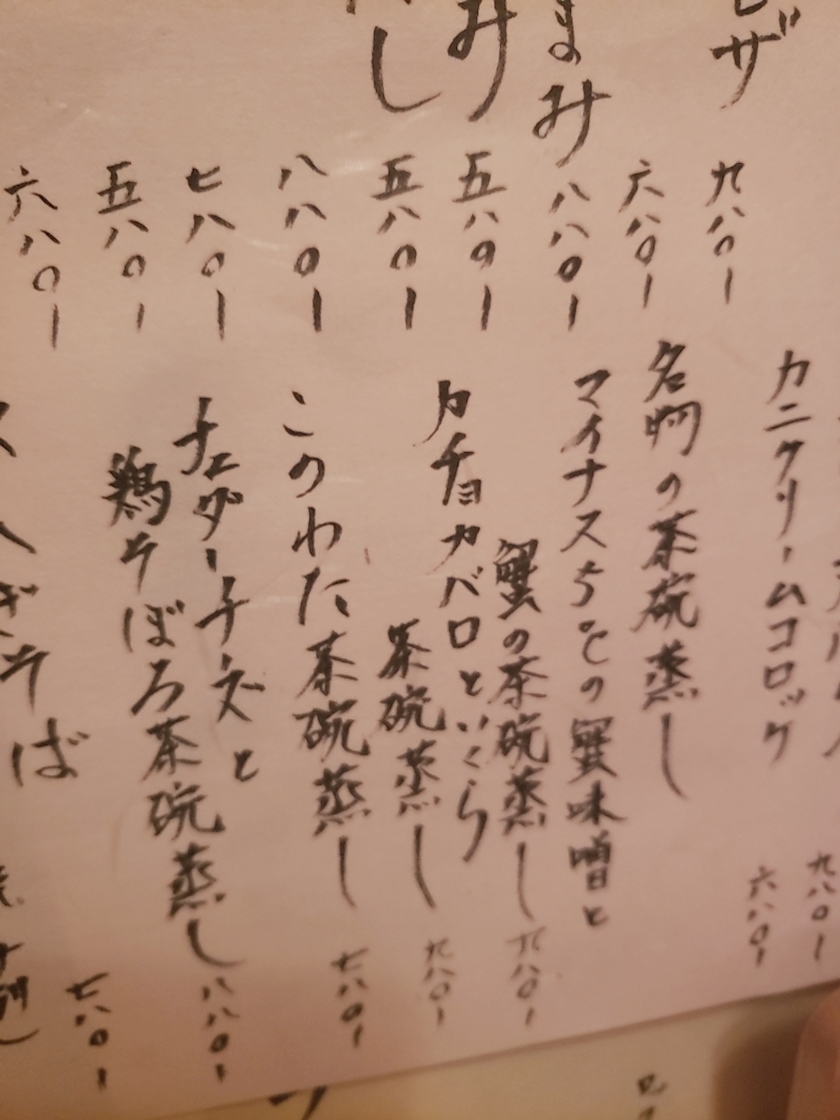 ザ
九八〇ー
六八〇ー
まみ
八八〇ー
み
五八〇ー
し
五八〇ー
八八〇ー
七八〇ー
五八〇ー
六八〇ー
九八〇ー
カニクリームコロッケ
六八〇ー
名物の茶碗蒸し
マイナス5℃の蟹味噌と
蟹の茶碗蒸し
九八〇ー
カチョカバロといくら
茶碗蒸し
九八〇ー
このわた茶碗蒸し
七八〇ー
チェダーチーズと
鶏そぼろ茶碗蒸し
八八〇ー
そば
七八〇ー